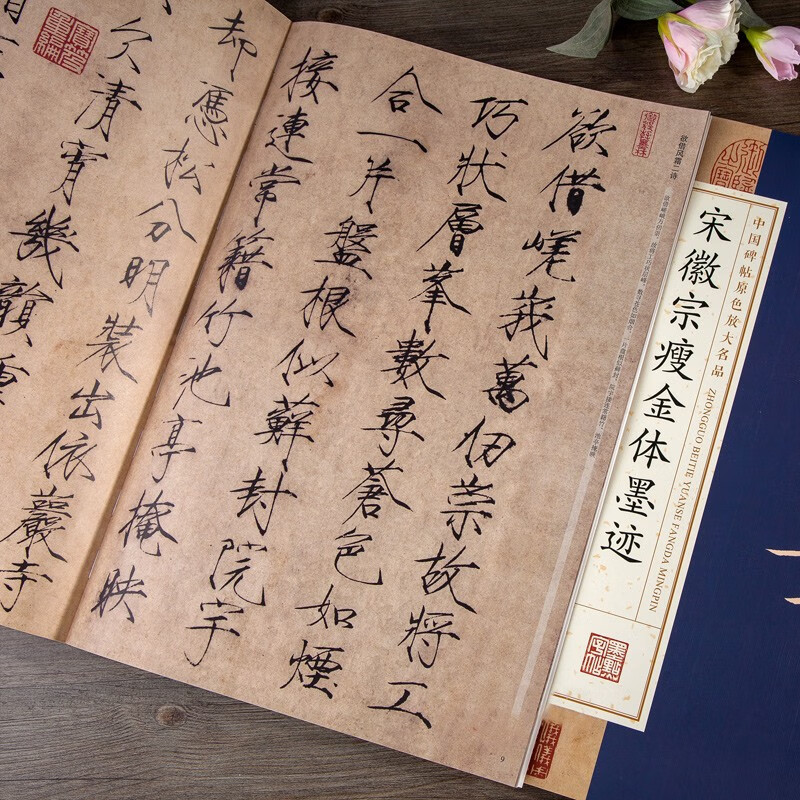 欲借嵯峩萬仞崇故將工
巧狀層峯數尋蒼色如煙
合一片盤根似蘚封院宇
接連常籍竹池亭掩映
却憑松分明裝出依巖寺
欠清宵幾韻
欲借风霜二诗
9
中国碑帖原色放大名品
ZHONGGUO BEITIE YUANSE FANGDA MINGPIN
宋徽宗瘦金体墨迹